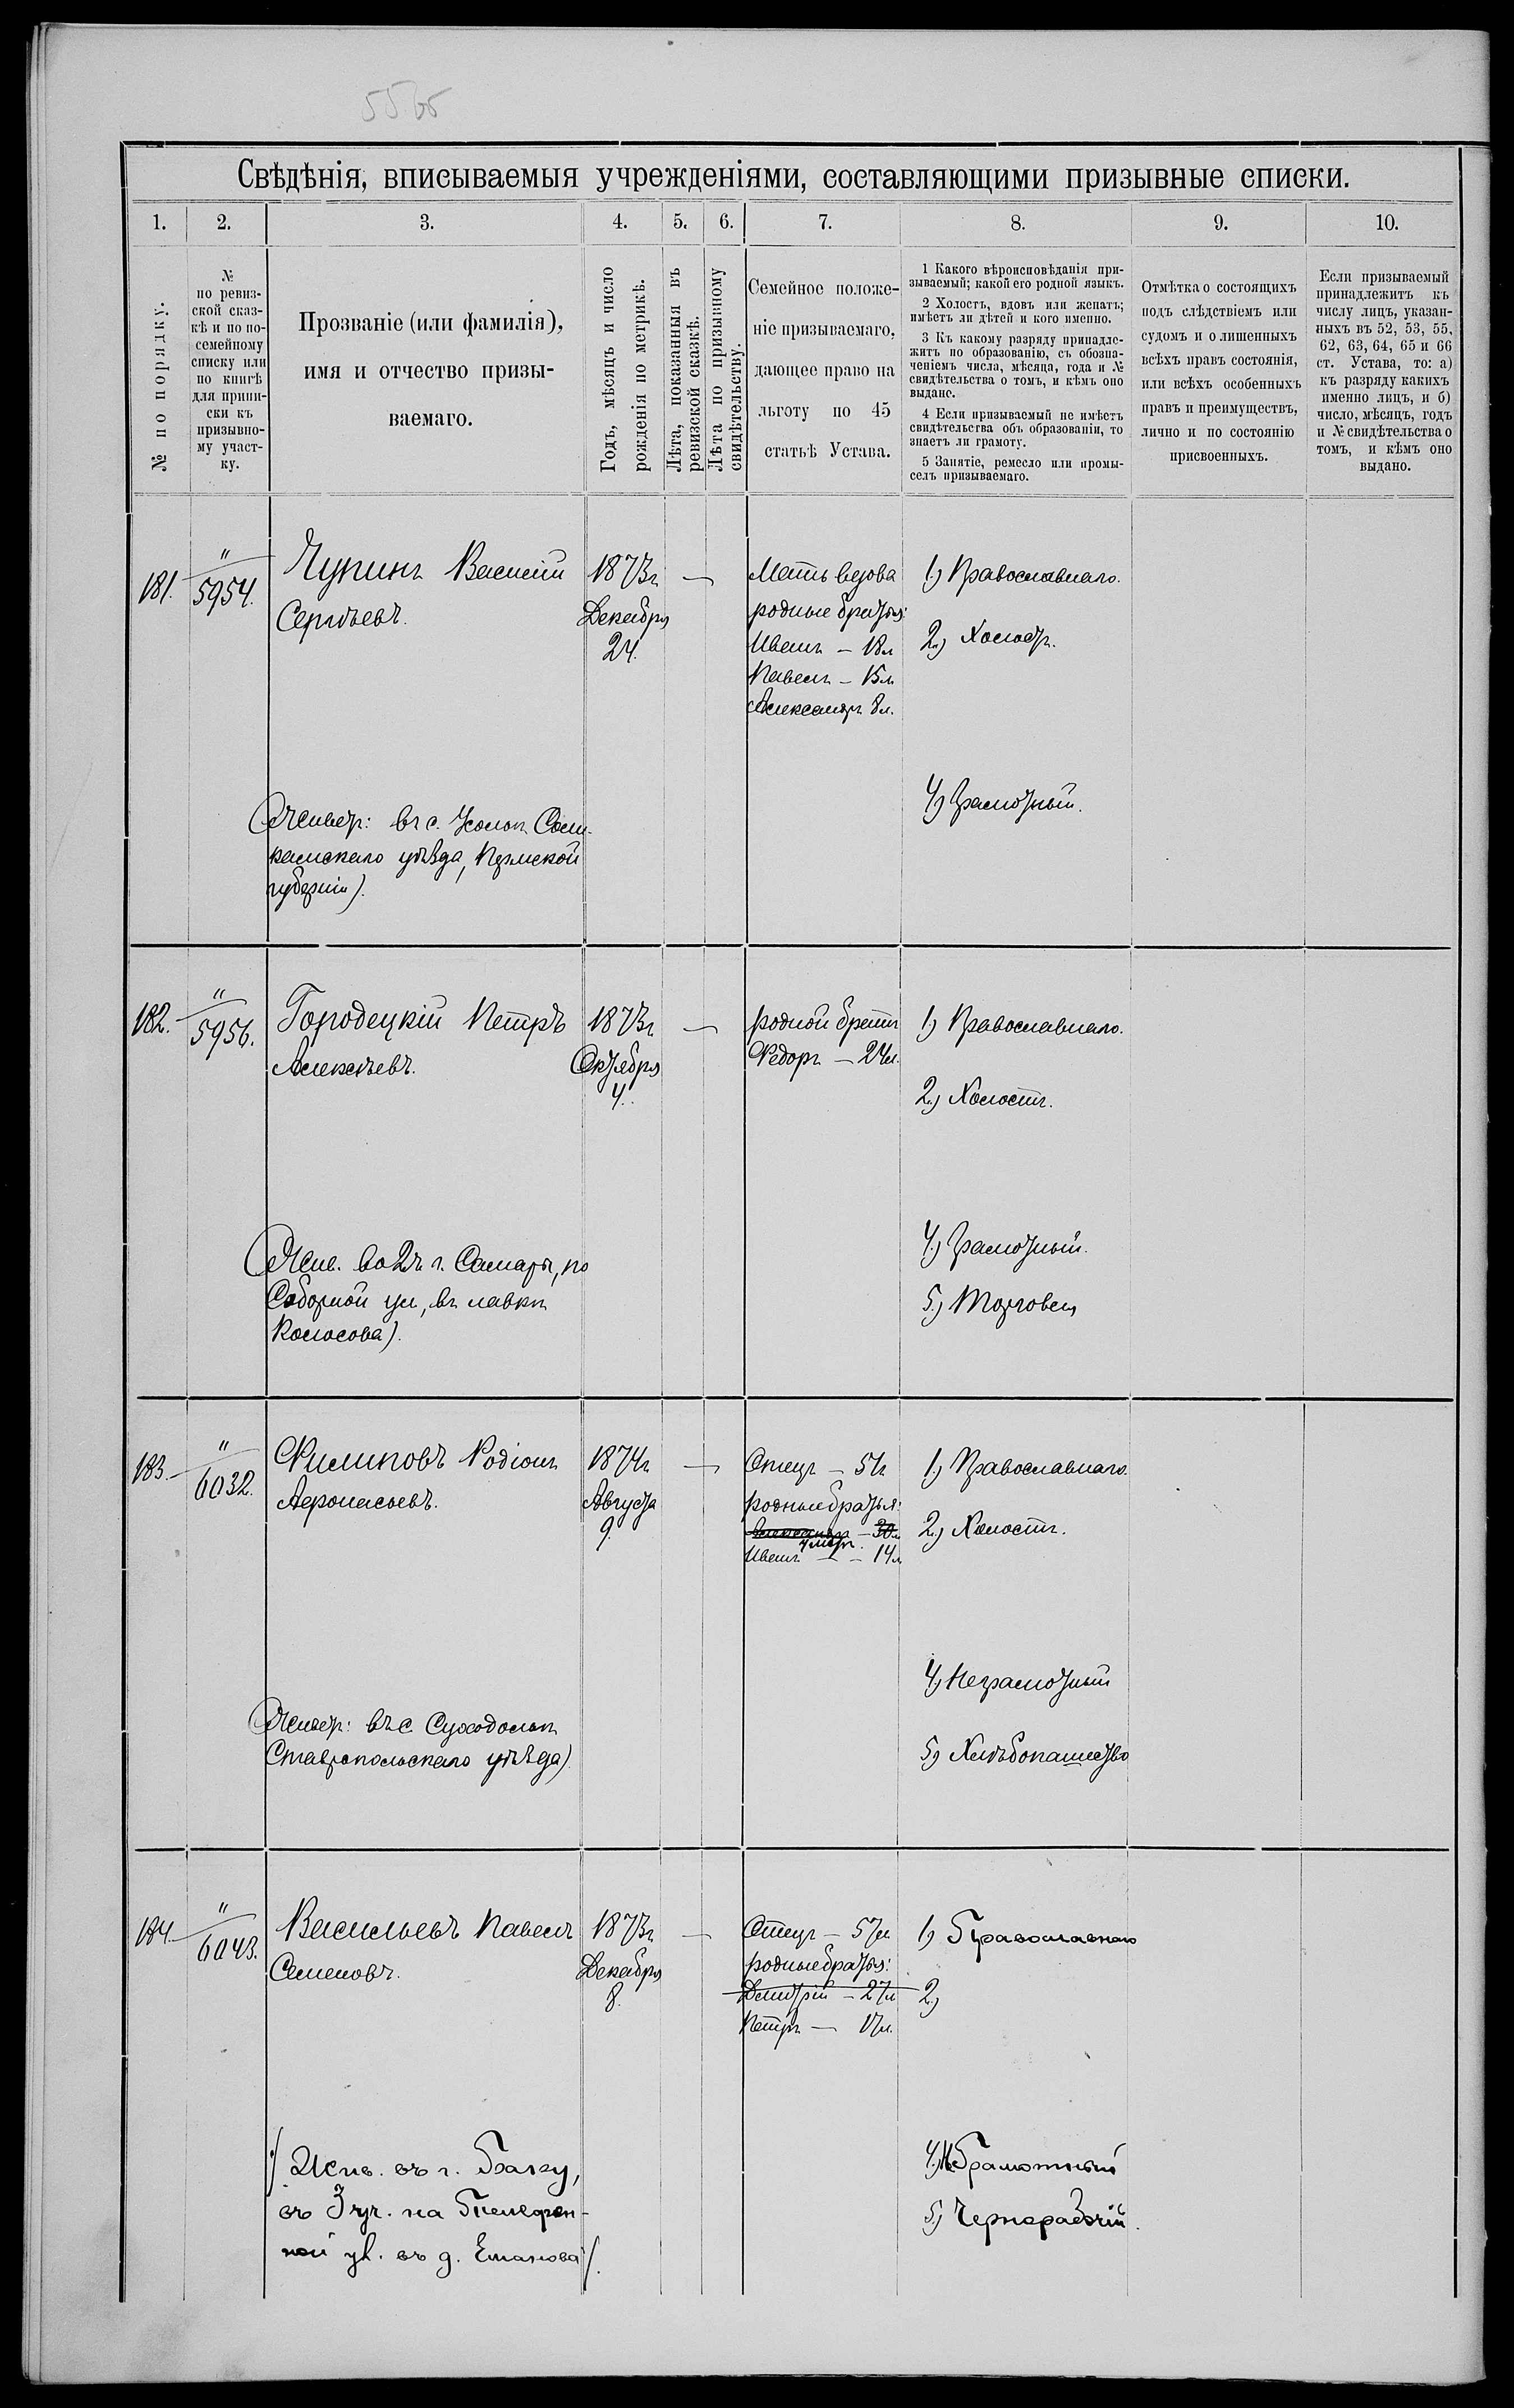 5565
Свѣдѣнія, вписываемыя учрежденіями, составляющими призывные списки.
1. 2. 3. 4. 5. 6. 7. 8. 9. 10.
№ по порядку.
№
по ревиз-
ской сказ-
кѣ и по по-
семейному
списку или
по книгѣ
для припи-
ски къ
призывно-
му участ-
ку.
Прозваніе (или фамилія),
имя и отчество призы-
ваемаго.
Годъ, мѣсяцъ и число
рожденія по метрикѣ.
Лѣта, показанныя въ
ревизской сказкѣ.
Лѣта по призывному
свидѣтельству.
Семейное положе-
ніе призываемаго,
дающее право на
льготу по 45
статьѣ Устава.
1 Какого вѣроисповѣданія при-
зываемый; какой его родной языкъ.
2 Холостъ, вдовъ или женатъ;
имѣетъ ли дѣтей и кого именно.
3 Къ какому разряду принадле-
житъ по образованію, съ обозна-
ченіемъ числа, мѣсяца, года и №
свидѣтельства о томъ, и кѣмъ оно
выдано.
4 Если призываемый не имѣетъ
свидѣтельства объ образованіи, то
знаетъ ли грамоту.
5 Занятіе, ремесло или промы-
селъ призываемаго.
Отмѣтка о состоящихъ
подъ слѣдствіемъ или
судомъ и о лишенныхъ
всѣхъ правъ состоянія,
или всѣхъ особенныхъ
правъ и преимуществъ,
лично и по состоянію
присвоенныхъ.
Если призываемый
принадлежитъ къ
числу лицъ, указан-
ныхъ въ 52, 53, 55,
62, 63, 64, 65 и 66
ст. Устава, то: а)
къ разряду какихъ
именно лицъ, и б)
число, мѣсяцъ, годъ
и № свидѣтельства о
томъ, и кѣмъ оно
выдано.
181.
"
5954.
Чупинъ Василій
Сергѣевъ.
(Жительст: въ с. Усольѣ Соли-
камскаго уѣзда, Пермской
губерніи).
1873г
Декабря
24.
—
Мать вдова
родные братья:
Иванъ – 18л
Павелъ – 15л
Александръ 8л.
1.) Православнаго.
2.) Холостъ.
4.) Грамотный.
182.
"
5956.
Городецкій Петръ
Алексѣевъ.
(Жит. во 2ч г. Самары, по
Соборной ул, въ лавкѣ
Колосова).
1873г
Октября
4.
—
родной братъ
Ѳедоръ – 24л.
1.) Православнаго.
2.) Холостъ.
4.) Грамотный.
5.) Торговля
183.
"
6032.
Филиповъ Родіонъ
Афонасьевъ.
(Жительст: въ с. Суходолѣ
Ставропольскаго уѣзда)
1874г
Августа
9.
—
Отецъ – 51г
родные братья:
Александръ – 30л
умеръ.
Иванъ – 14л
1.) Православнаго.
2.) Холостъ.
4.) Неграмотный
5.) Хлѣбопашество
184.
"
6043.
Васильевъ Павелъ
Семеновъ.
/ Жит. въ г. Баку,
въ 3 уч. на
ной ул. въ д. /.
1873г
Декабря
8.
—
Отецъ – 57л
родные братья:
Дмитрій – 27л
Петръ — 17л.
1.) Православнаго
2.)
4.) Неграмотный
5.) Чернорабочій.